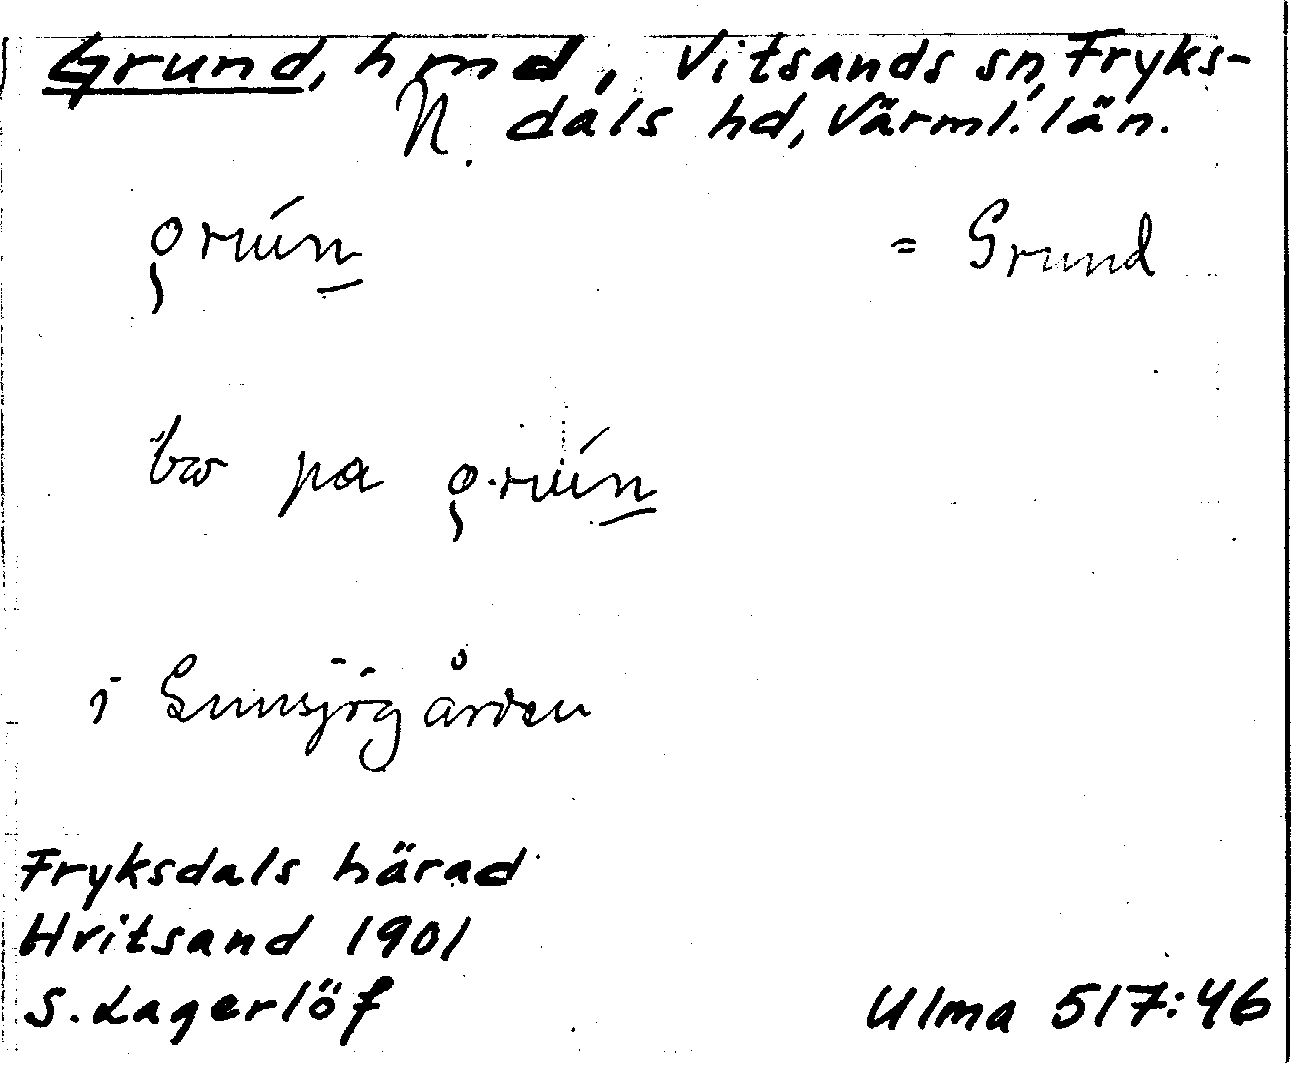 Grund, hmd, Vitsands sn, Fryks-
N. dals hd, Värml. län.
gruń = Grund
bo pa gruń
i Lunsjögården
Fryksdals härad
Hvitsand 1901
S. Lagerlöf Ulma 517:46